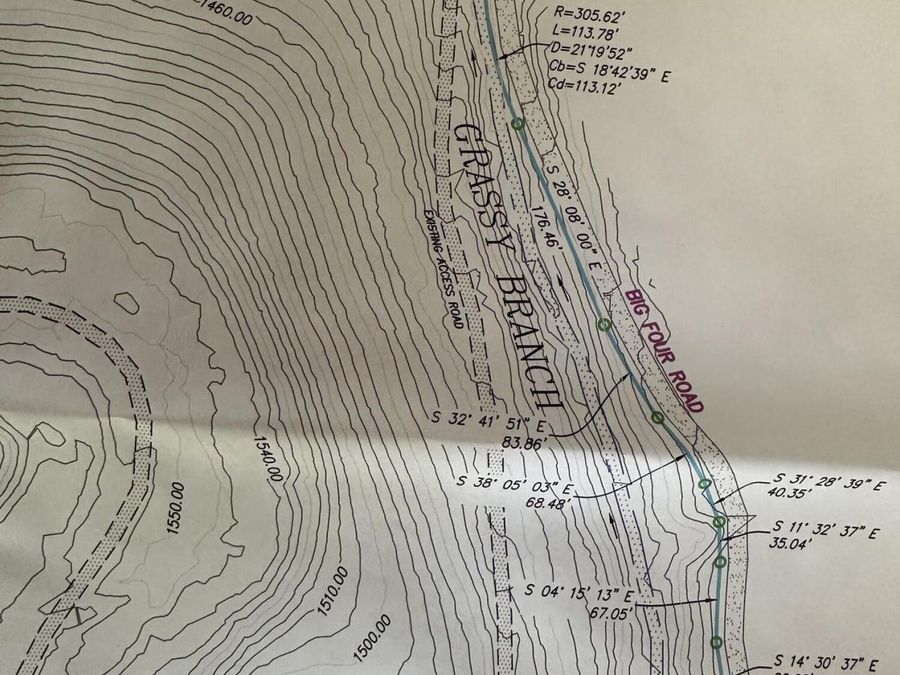 1460.00
R=305.62'
L=113.78'
D=21°19'52"
Cb=S 18°42'39" E
Cd=113.12'
GRASSY BRANCH
S 28° 08' 00" E
176.46'
EXISTING ACCESS ROAD
BIG FOUR ROAD
S 32° 41' 51" E
83.86'
1540.00
S 38° 05' 03" E
68.48'
S 31° 28' 39" E
40.35'
1550.00
S 11° 32' 37" E
35.04'
1510.00
S 04° 15' 13" E
67.05'
1500.00
S 14° 30' 37" E